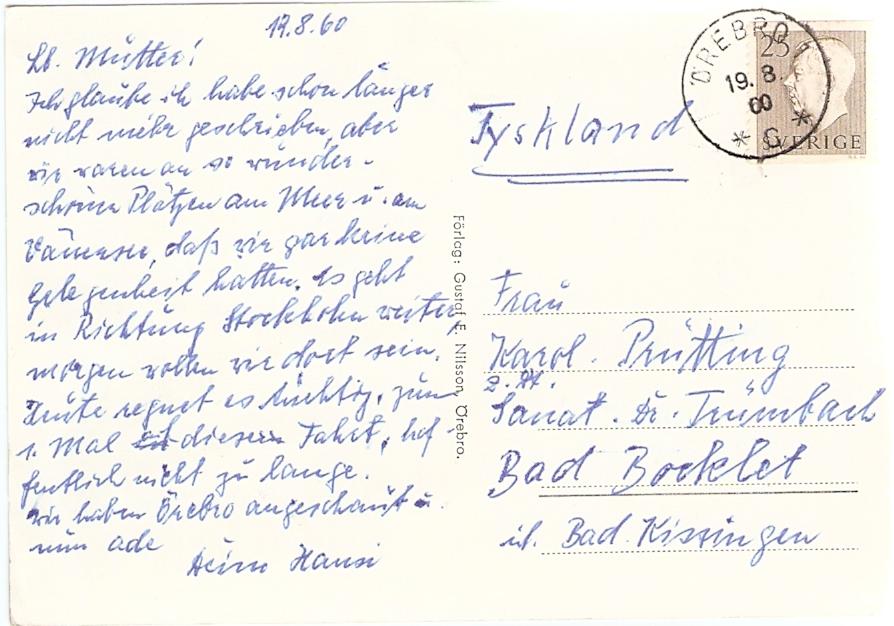 19.8.60
Lb. Mutter!
Ich glaube ich habe schon länger
nicht mehr geschrieben, aber
wir waren an so wunder-
schönen Plätzen am Meer u. am
Vänersee, daß wir gar keine
Gelegenheit hatten. Es geht
in Richtung Stockholm weiter,
morgen wollen wir dort sein.
Heute regnet es tüchtig, zum
1. Mal dieser Fahrt, hof-
fentlich nicht zu lange.
wir haben Örebro angeschaut u.
nun ade
Deine Hansi
Förlag: Gustaf E. Nilsson, Örebro.
ÖREBRO 1
19. 8.
60
* C *
25
SVERIGE
Tyskland
Frau
Karol. Prütting
z. Zt.
Sanat. Dr. Trümbach
Bad Bocklet
Bad Kissingen